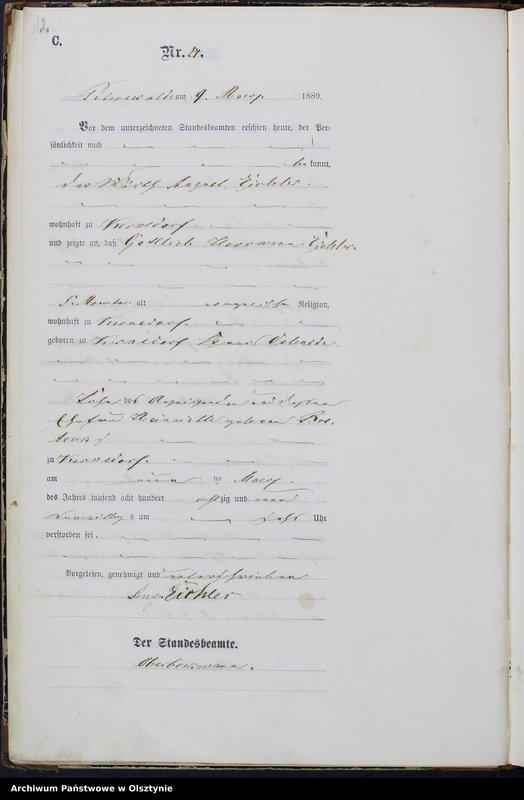 12.
C.
Nr. 14.
Peterswalde am 9. Maerz 1889.
Vor dem unterzeichneten Standesbeamten erschien heute, der Per=
sönlichkeit nach
be kannt,
der Wirth August Eichler.
wohnhaft zu Kernsdorf
und zeigte an, daß Gottlieb Herrmann Eichler
Monate alt evangelischer Religion,
wohnhaft zu Kernsdorf
geboren zu Kernsdorf Kreis Osterode
Sohn des Anzeigenden und dessen
Ehefrau Henriette geborene
zu Kernsdorf
am neun ten Maerz
des Jahres tausend acht hundert achtzig und neun
Vormittags um Uhr
verstorben sei.
Vorgelesen, genehmigt und unterschrieben
Aug. Eichler
Der Standesbeamte.
Archiwum Państwowe w Olsztynie